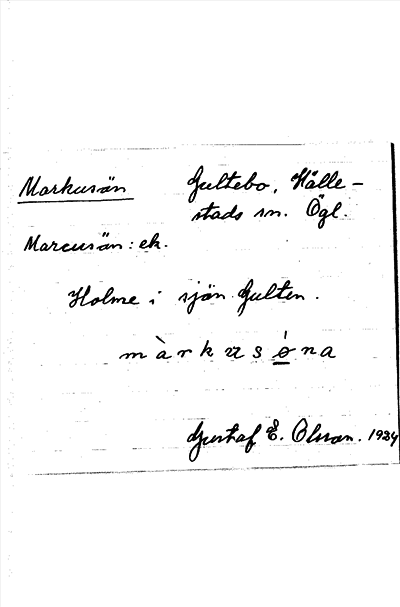 Markusön
Gultebo, Hälle-
stads sn. Ögl.
Marcusön: ek.
Holme i sjön Gulten.
màrkusǿna
Gustaf E. Olsson. 1934